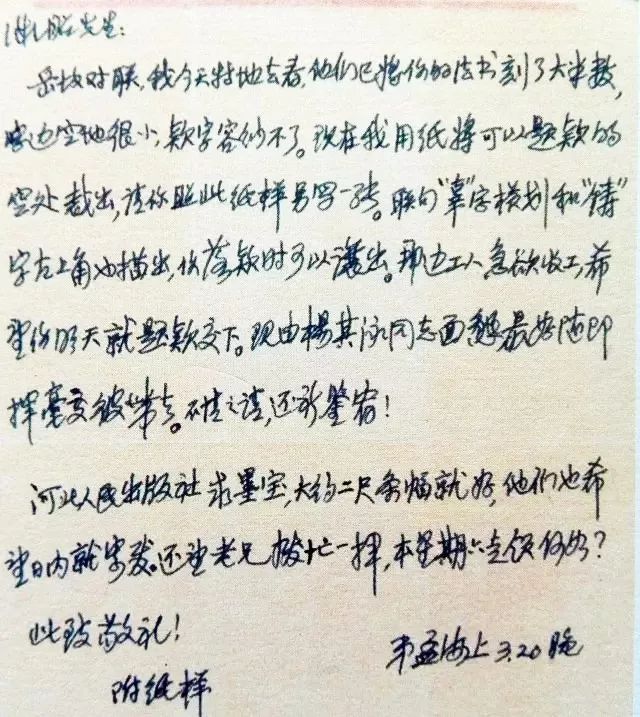 先生:
岳坟对联,我今天特地去看,他们已将你的法书刻了大半数,
边空地很小,款字容纳不了。现在我用纸将可以题款的
空处裁出,请你照此纸样另写一张。联句“辜”字横划和“铸”
字右上角也描出,你落款时可以让出。那边工人急欲收工,希
望你明天就题款交下。现由杨其同志面恳,最好随即
挥毫交彼带去。不情之请,还祈鉴宥!
河北人民出版社求墨宝,大约二尺条幅就好,他们也希
望日内就寄发。还望老兄拨忙一挥,本星期六走领何如?
此致敬礼!
弟孟海上 3.20晚
附纸样